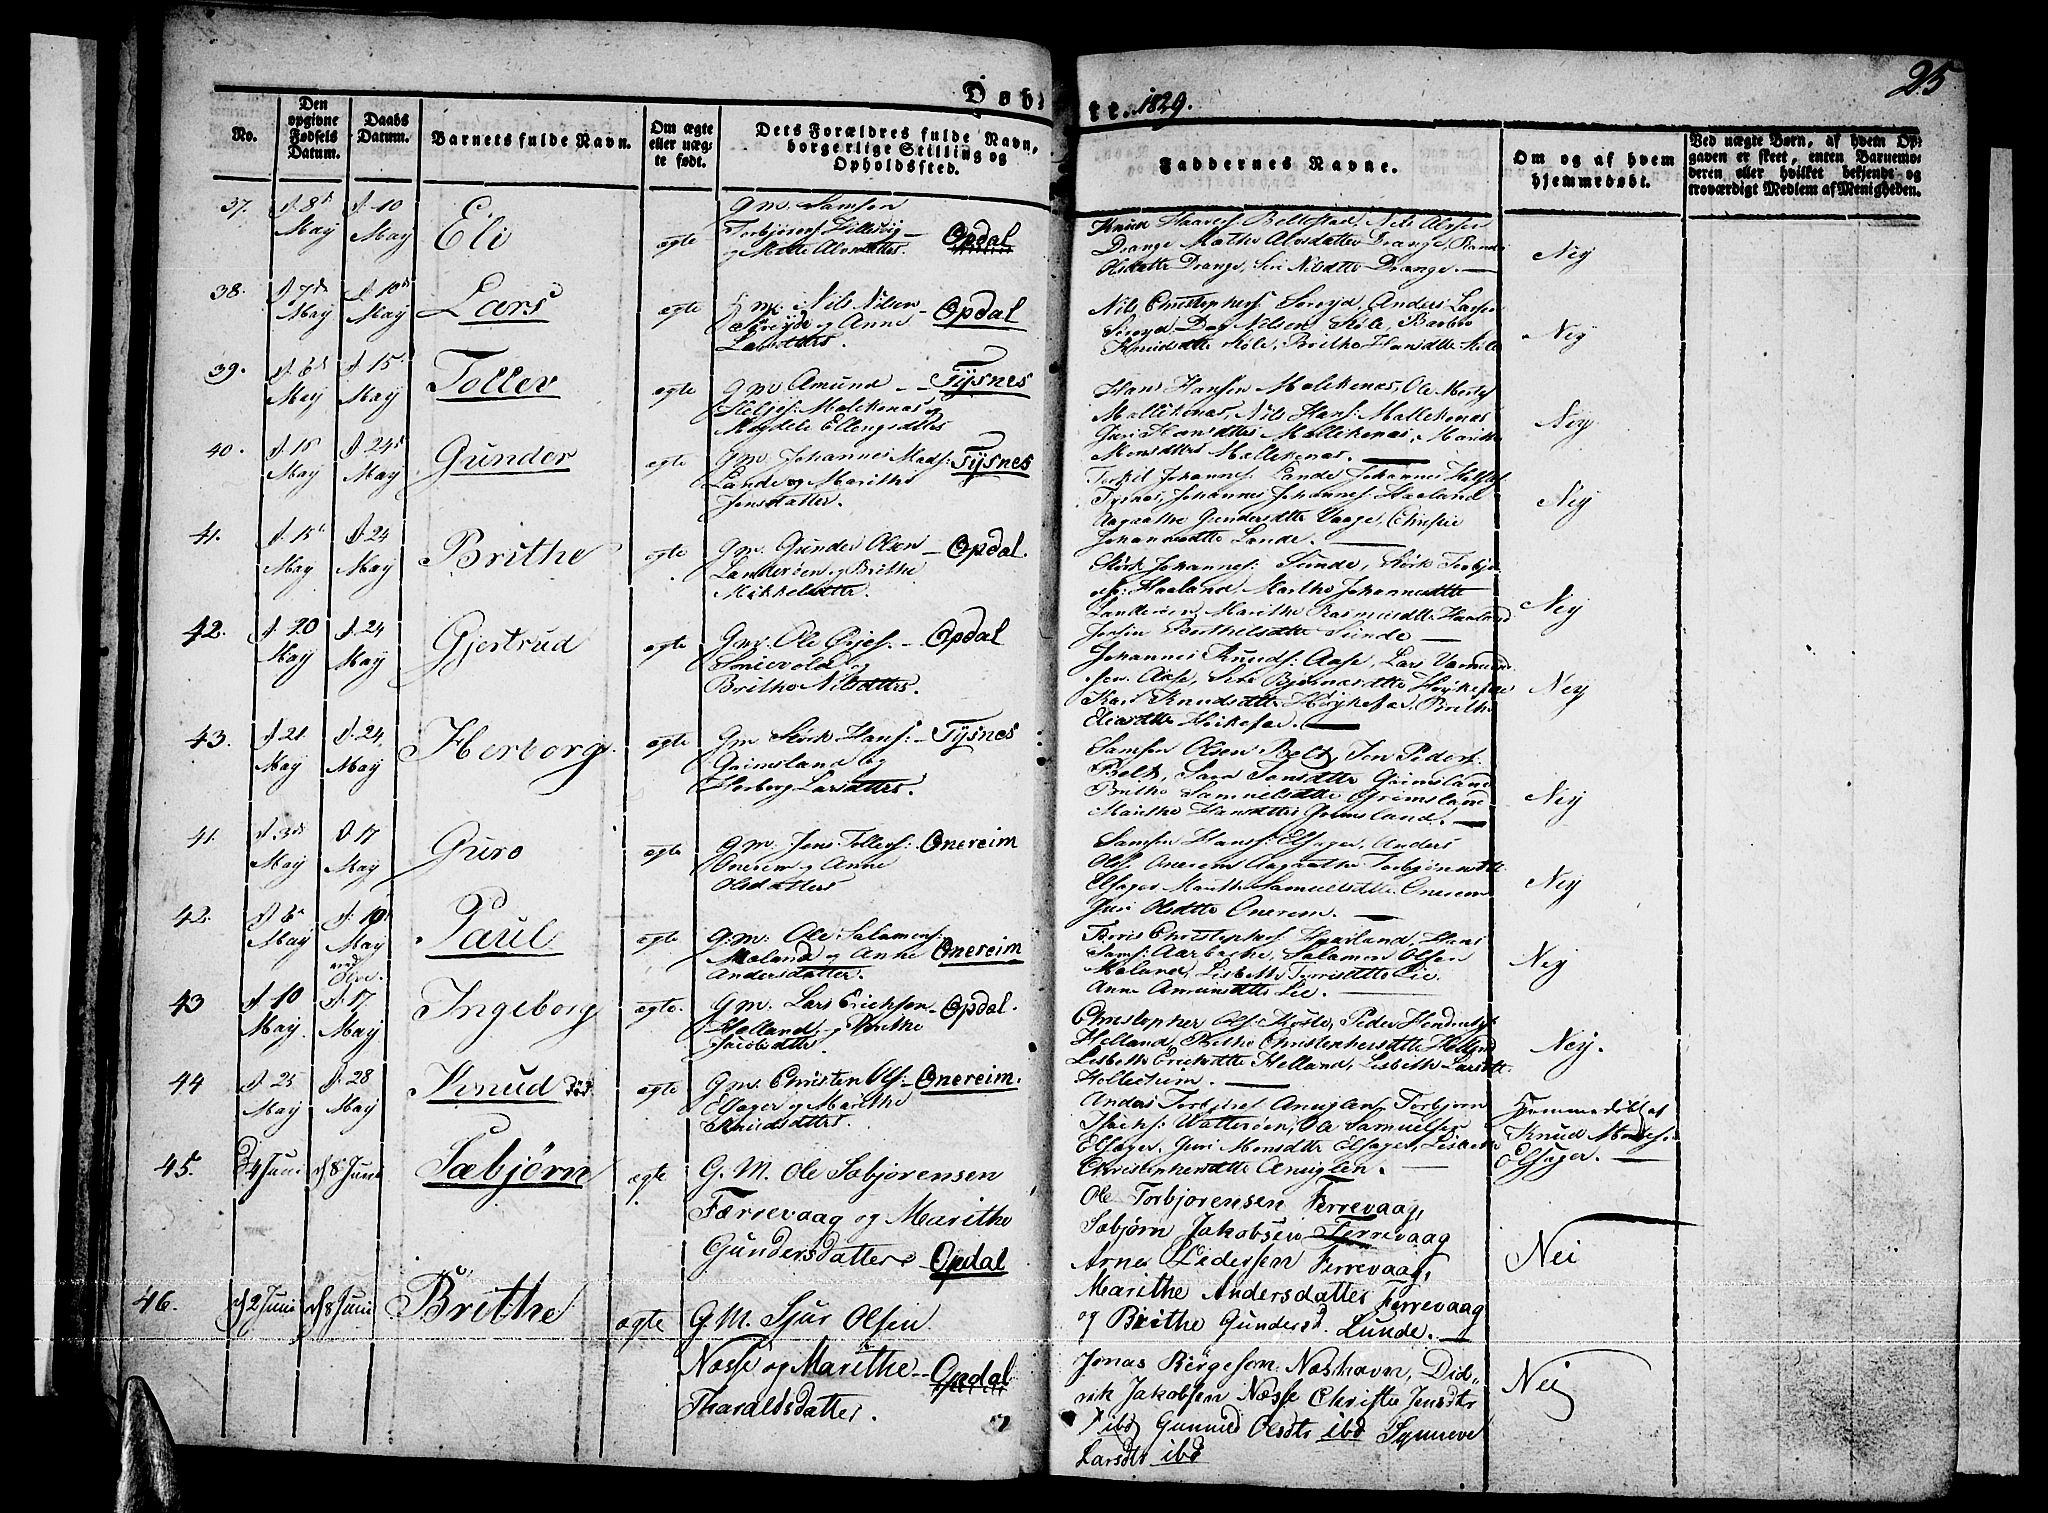 Døbte. 1829.
25
No.
Den opgivne Fødsels Datum.
Daabs Datum.
Barnets fulde Navn.
Om ægte eller uægte født.
Dets Forældres fulde Navn, borgerlige Stilling og Opholdssted.
Faddernes Navne.
Om og af hvem hjemmedøbt.
Ved uægte Børn, af hvem Opgaven er skeet, enten Barnemoderen eller hvilket bekjendt og troværdigt Medlem af Menigheden.
37.
d. 8d May
d. 10 May
Eli
egte
Gm. Samson
Torbjørens
og Mette Alvsdatter.
Opdal
Knud
Drange Marthe Alvsdatter Drange,
Olsdatter Drange, Siri Nilsdttr Drange.
Ney
38.
d. 7de May
d. 10de May
Lars
egte
Gm. Nils Nilsen
og Anne
Larsdtter.
Opdal
Nils Christophers. Søreyd, Anders Larsen
Søreyd. Dag Nilsen Skile, Barbro
Knudsdtte Skile, Brithe Hansdtte Skile
Ney
39.
d. 6d May
d. 15. May
Tollev
egte
Gm Amund
Helges: Malekenas og
Magdele Ellengsdtter
Tysnes
Hans Hansen Malekenas, Ole
Mallikenas, Nils Hans: Mallekenas
Guri Hansdtter Mallekenas, Marithe
Monsdtter Mallekenas.
Ney
40.
d. 18 May
d. 24d May
Gunder
egte
Gm. Johannes Mads:
Lande og Marithe
Jonsdatter.
Tysnes
Torkil Johannes: Lande Johannes
Tysnes, Johannes Johannes: Haaland
Aagaathe Gundersdtte Vaage, Christie
Johannesdtte Lande.
Ney
41.
d. 15 May
d. 24 May
Brithe
egte
Gm. Gunder Olsen
Landerøen og Brithe
Mikkelsdtter.
Opdal.
Størk Johannes: Sunde, Størk
Haaland, Marthe Johannesdtte
Landerøen, Marithe Rasmusdtte Haaland
Berthelsdtte Sunde
Ney
42.
d. 20 May
d. 24 May
Gjertrud
egte
Gm. Ole
og
Brithe Nilsdtter.
Opdal
Johannes Knuds: Aase, Lars
Aase, Siri Bjørnesdtte
Kari Knudsdtte
Ney
43.
d. 21 May
d. 24. May
Herborg.
egte
Gm Størk Hans:
Grimsland og
Herborg Larsdtter.
Tysnes
Samson Olsen Bolt, Jon Peders:
Bolt, Sara Jonsdtte Grimsland
Brithe Samuelsdtte Grimsland
Marithe Hansdtter Grimsland.
Ney
41.
d. 3de May
d. 17 May
Guro
egte
Gm. Jens Tollefs:
Onereim og Anne
Olsdatter
Onereim
Samson Hans: Elsager, Anders
Ols. Onereim Aagaathe Torbjørnsdtte
Elsager Marithe Samuelsdtte Onereim
Guri Olsdtte Onereim.
Ney
42.
d. 6 May
d. 10 May
Paul
egte
G.M. Ole Salamons:
Meland og Anne
Andersdatter.
Onereim
Christophers Haaland, Hans
Sams: Aarbakke, Salamon Olsen
Meland, Lisbeth Lie
Anne Amunsdtte Lie.
Ney
43
d. 10 May.
d. 17. May
Ingeborg
egte.
Gm. Lars Erichsen
Helland og Brithe
Jacobsdtte.
Opdal.
Christopher Ols: Peder
Helland, Brithe Christophersdtte Helland
Lisbeth Erichsdtte Helland, Lisbeth Larsdtte
Ney.
44
d. 25 May
d. 28 May
Knud død.
egte
Gm. Christen Ols:
Elsager og Marithe
Knudsdtter.
Onereim.
Anders Anuglen Torbjørn
Watterøen, Ole Samuelsen
Elsager, Guri Monsdtte Elsager, Lisbeth
Christophersdtte Anuglen.
Hjemmedøbt af
Knud
Elsager.
45.
4 Juni
d 8. Juni
Sæbjørn
egte
G. M. Ole Sæbjorensen
Færrevaag og Marithe
Gundersdatter
Opdal
Ole Torbjorensen Ferrevaag,
Sæbjørn Jakobsen Ferrevaag
Arne Pedersen Ferrevaag,
Marithe Andersdatter Ferrevaag
og Brithe Gundersd. Lunde.
Nei
46.
d 2 Juni
d 8 Juni
Brithe
egte
G. M. Sjur Olsen
Næsse og Marithe
Tharaldsdatter.
Opdal
Jonas Børgesøn Næshavn, Did-
rik Jakobsen Næsse Christie Jensdtr
ibd Gunnild Olsdtr ibd Synneve
Larsdtr ibd
Nei